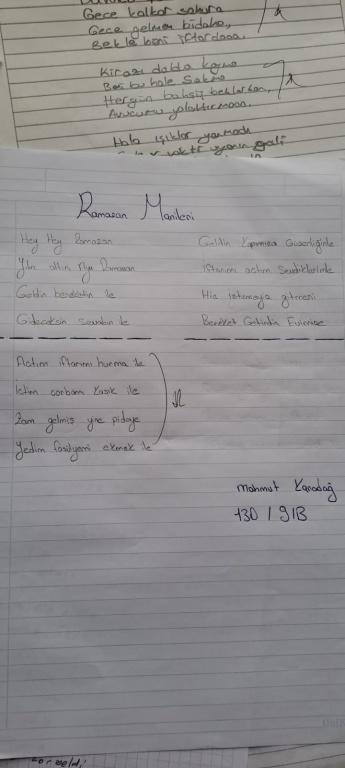 Gece kalkar sahura
Gece gelmen bidaha,
Bekle beni iftardaaa.
Kirazı dalda koyma
Beni bu hale
Hergün bahşiş beklerken,
Avucunu yalattırmaaa.
Hala ışıklar yanmadı
Ramazan Manileri
Hey Hey Ramazan
Yılın altın Ayı Ramazan
Geldin bereketin ile
Gideceksin sevabın ile
Geldin Kapımıza Güzelliğinle
İftarımı actım Sevdiklerimle
Hiç istemeye gitmeni
Bereket Getirdin Evimize
Actım iftarımı hurma ile
İctim corbam kasık ile
Zam gelmiş yne pidaye
Yedim fasilyemi ekmek ile
Mahmut Karadağ
130 / 9/B